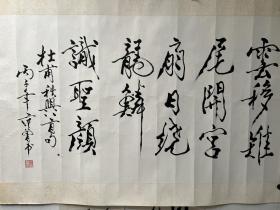 雲移雉
尾開宮
扇日繞
龍鱗
識聖顏
杜甫秋興八首句
丙子年